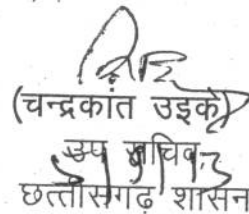 (चन्द्रकांत उइके)
उप सचिव,
छत्तीसगढ़ शासन